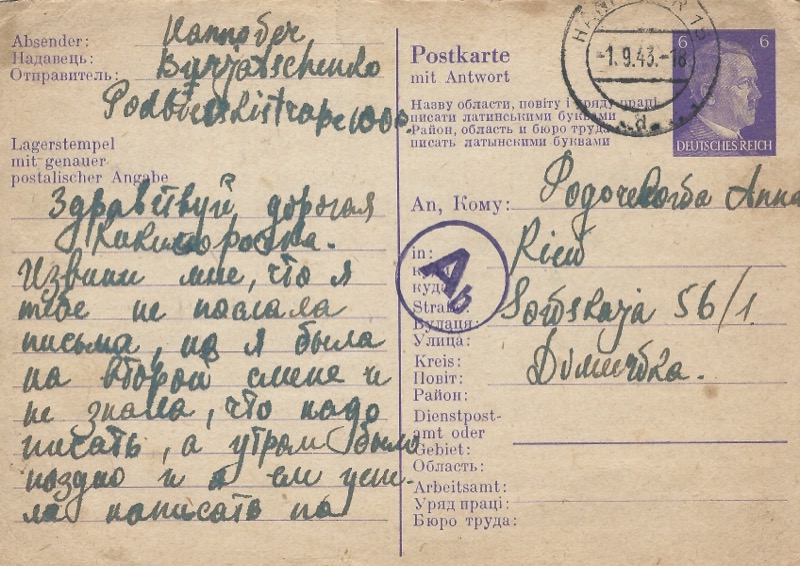 Absender:
Надавець:
Отправитель:
Ганновер
Podbielskistraße 100 р.
Lagerstempel
mit genauer
postalischer Angabe
Здравствуй дорогая
Извини мне, что я
тебе не послала
письма, но я была
на второй смене и
не знала, что надо
писать, а утром было
поздно и я
написать на
Postkarte
mit Antwort
Назву области, повіту і уряду праці
писати латинськими буквами
Район, область и бюро труда
писать латынскими буквами
1.9.43.-18
d
6 6
DEUTSCHES REICH
An, Кому:
Anna
in:
куди
куда
Straße
Вулиця:
Улица:
Kreis:
Повіт:
Район:
Dienstpost-
amt oder
Gebiet:
Область:
Arbeitsamt:
Уряд праці:
Бюро труда:
Kiew
56/1
Димитровка.
Ab